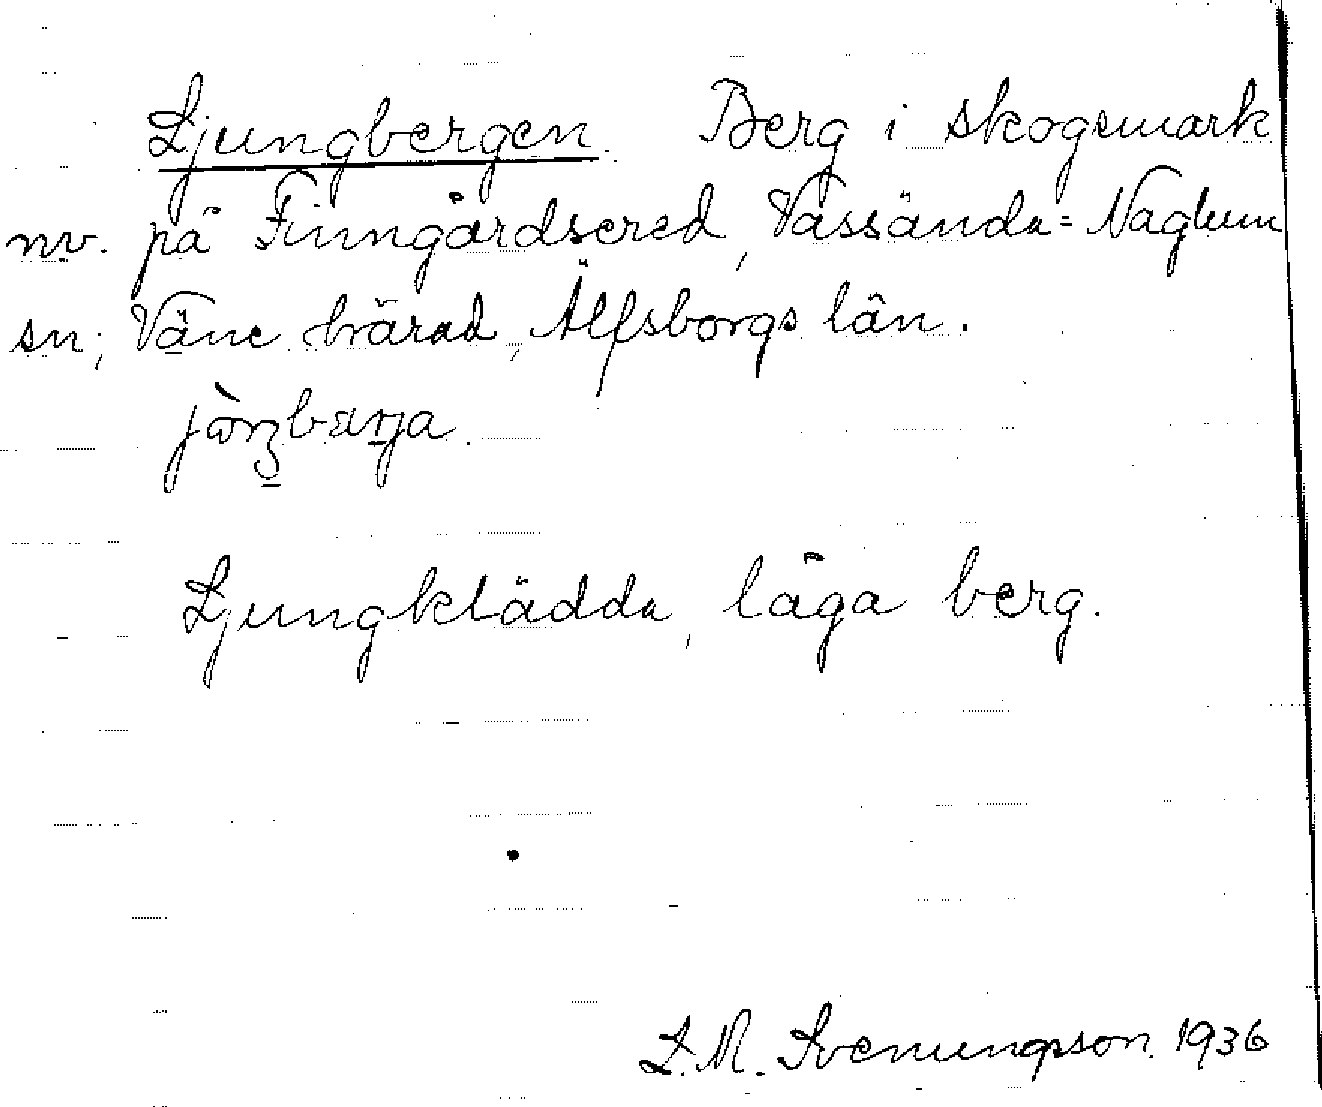 Ljungbergen. Berg i skogsmark
nv. på Finngårdsered, Vassända-Naglum
sn; Väne härad, Älfsborgs län.
Ljungklädda, låga berg.
L.M. Svenungsson 1936